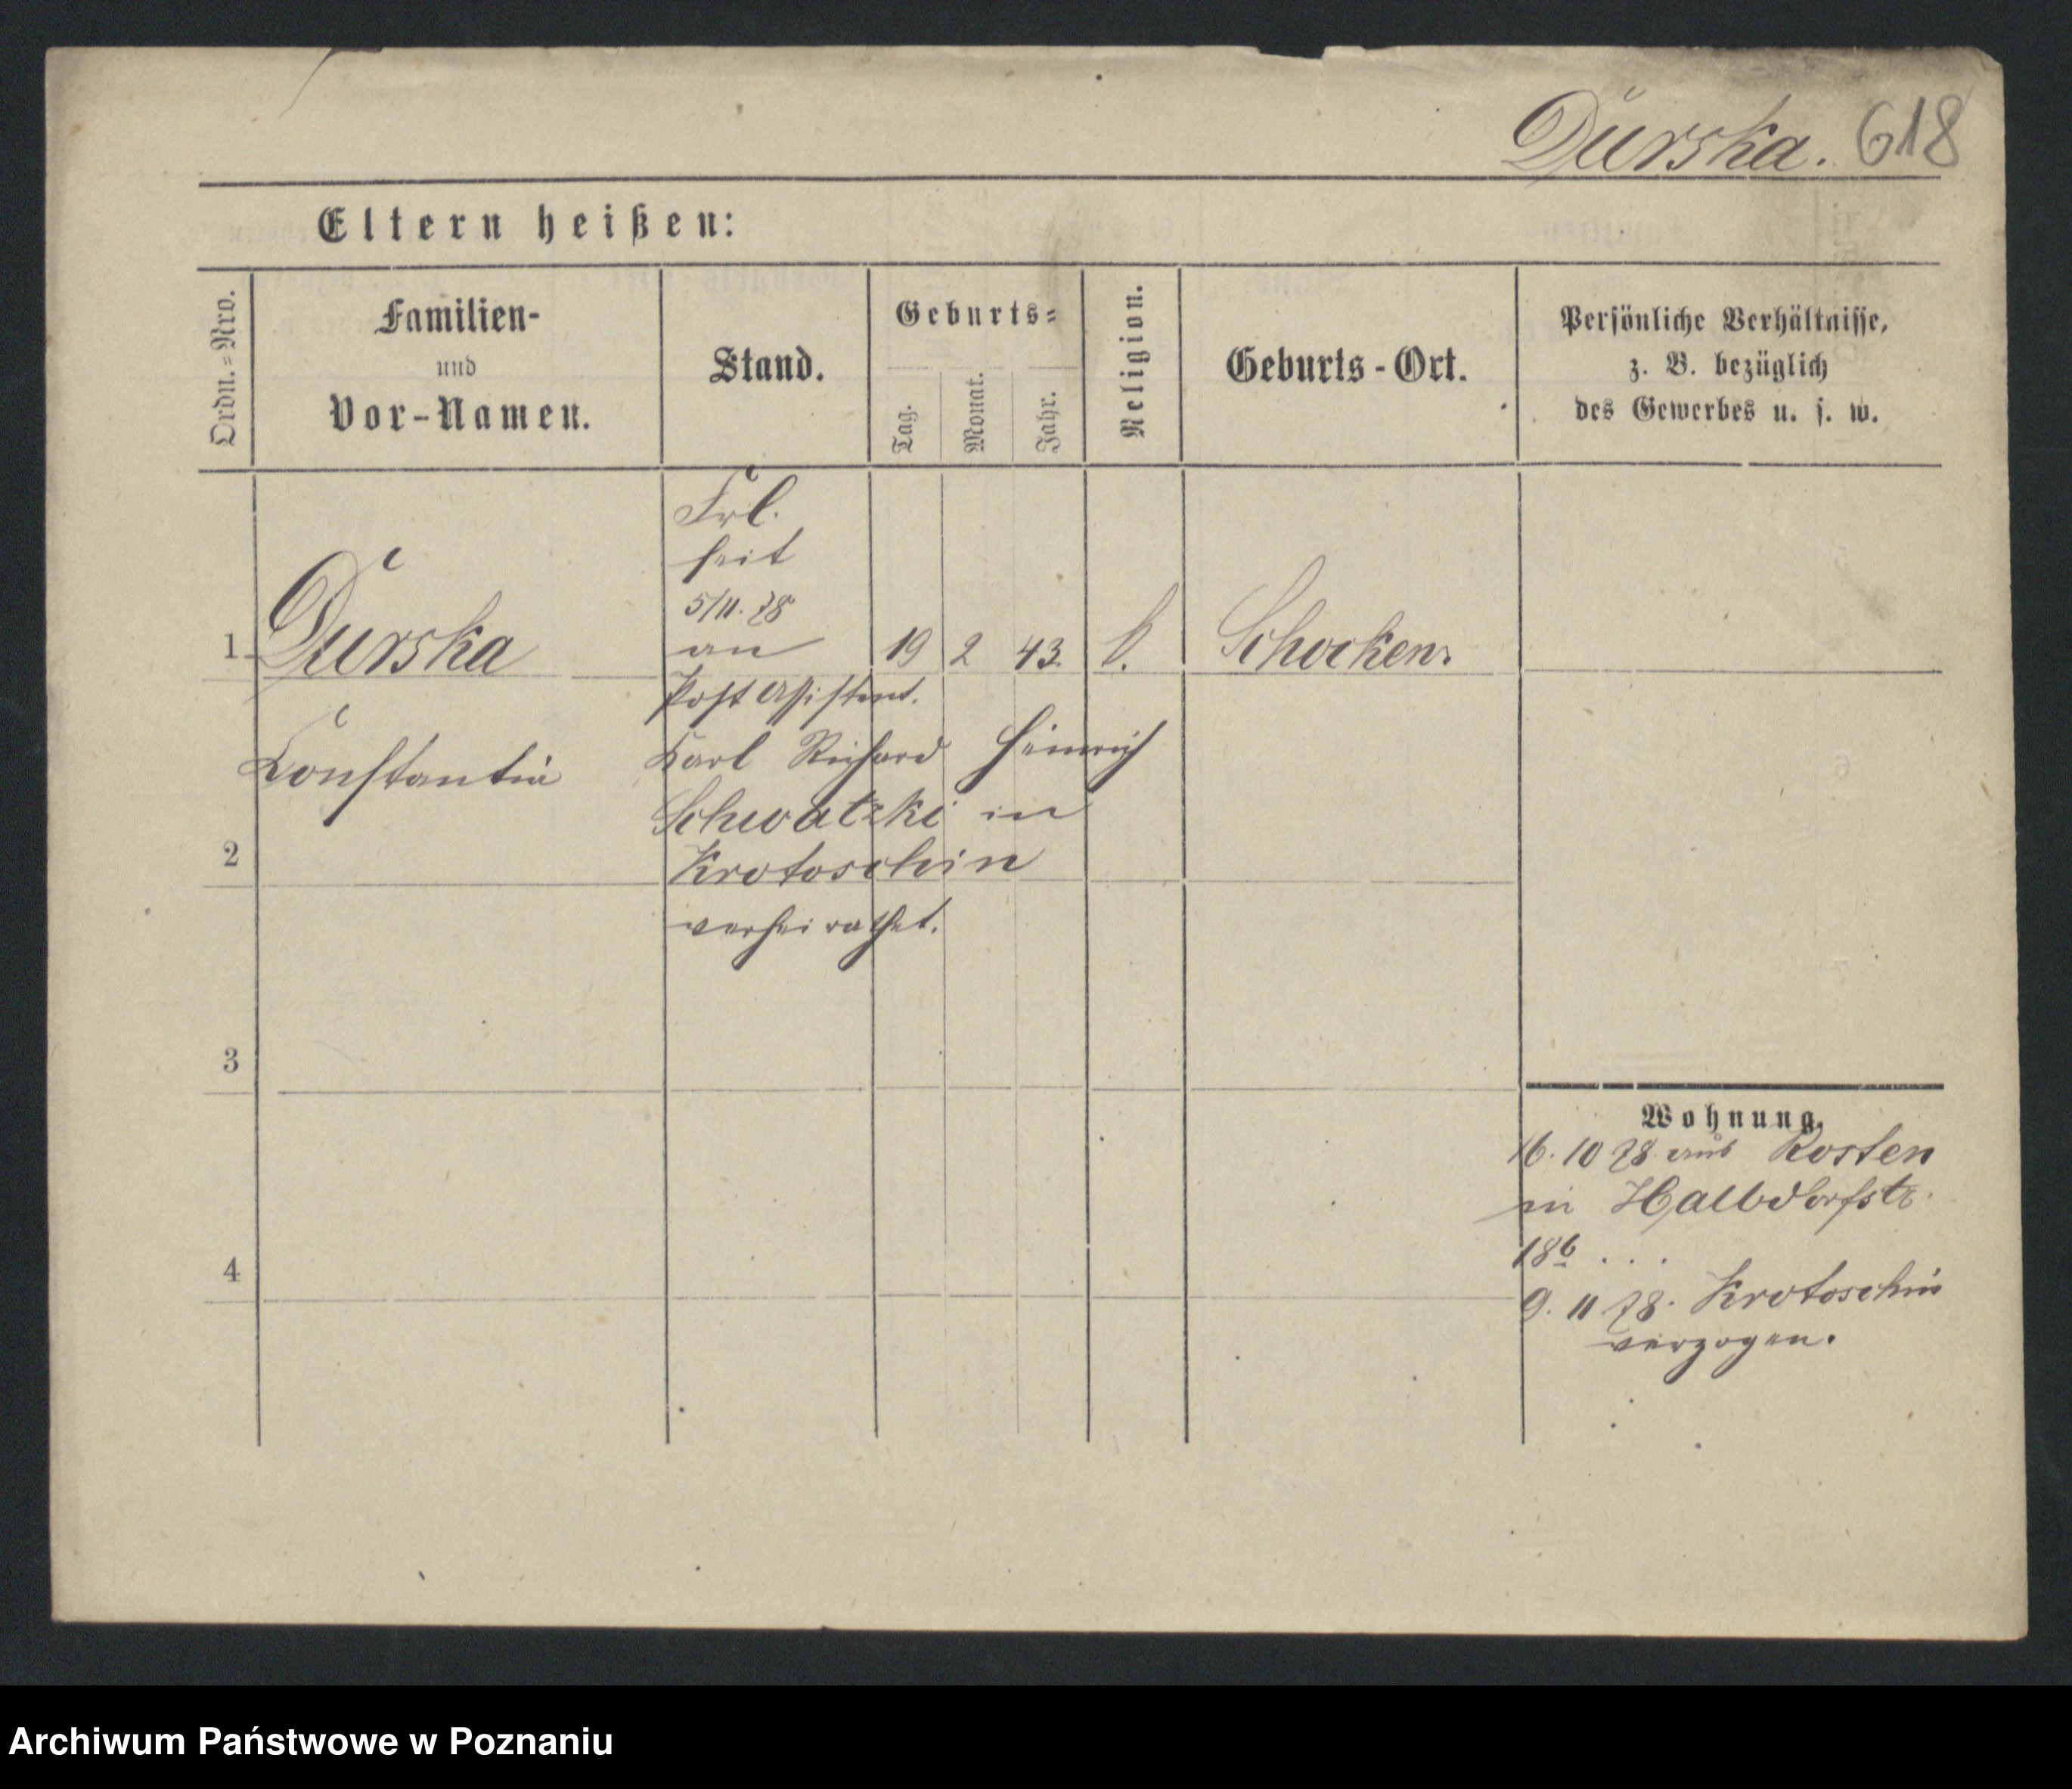 Durska. 618
Eltern heißen:
Ordn.=Nro.
Familien-
und
Vor-Namen.
Stand.
Geburts=
Tag.
Monat.
Jahr.
Religion.
Geburts-Ort.
Persönliche Verhältnisse,
z. B. bezüglich
des Gewerbes u. s. w.
Frl.
seit
5/11. 78
1 Durska an 19 2 43. k. Schocken.
Post Assistent.
Constantia Karl Richard Heinrich
Schwatzki in
2 Krotoschin
verheirathet.
3
4
Wohnung.
16. 10 78 aus Kosten
in Halbdorfstr.
18b . . .
9. 11 78. Krotoschin
verzogen.
Archiwum Państwowe w Poznaniu